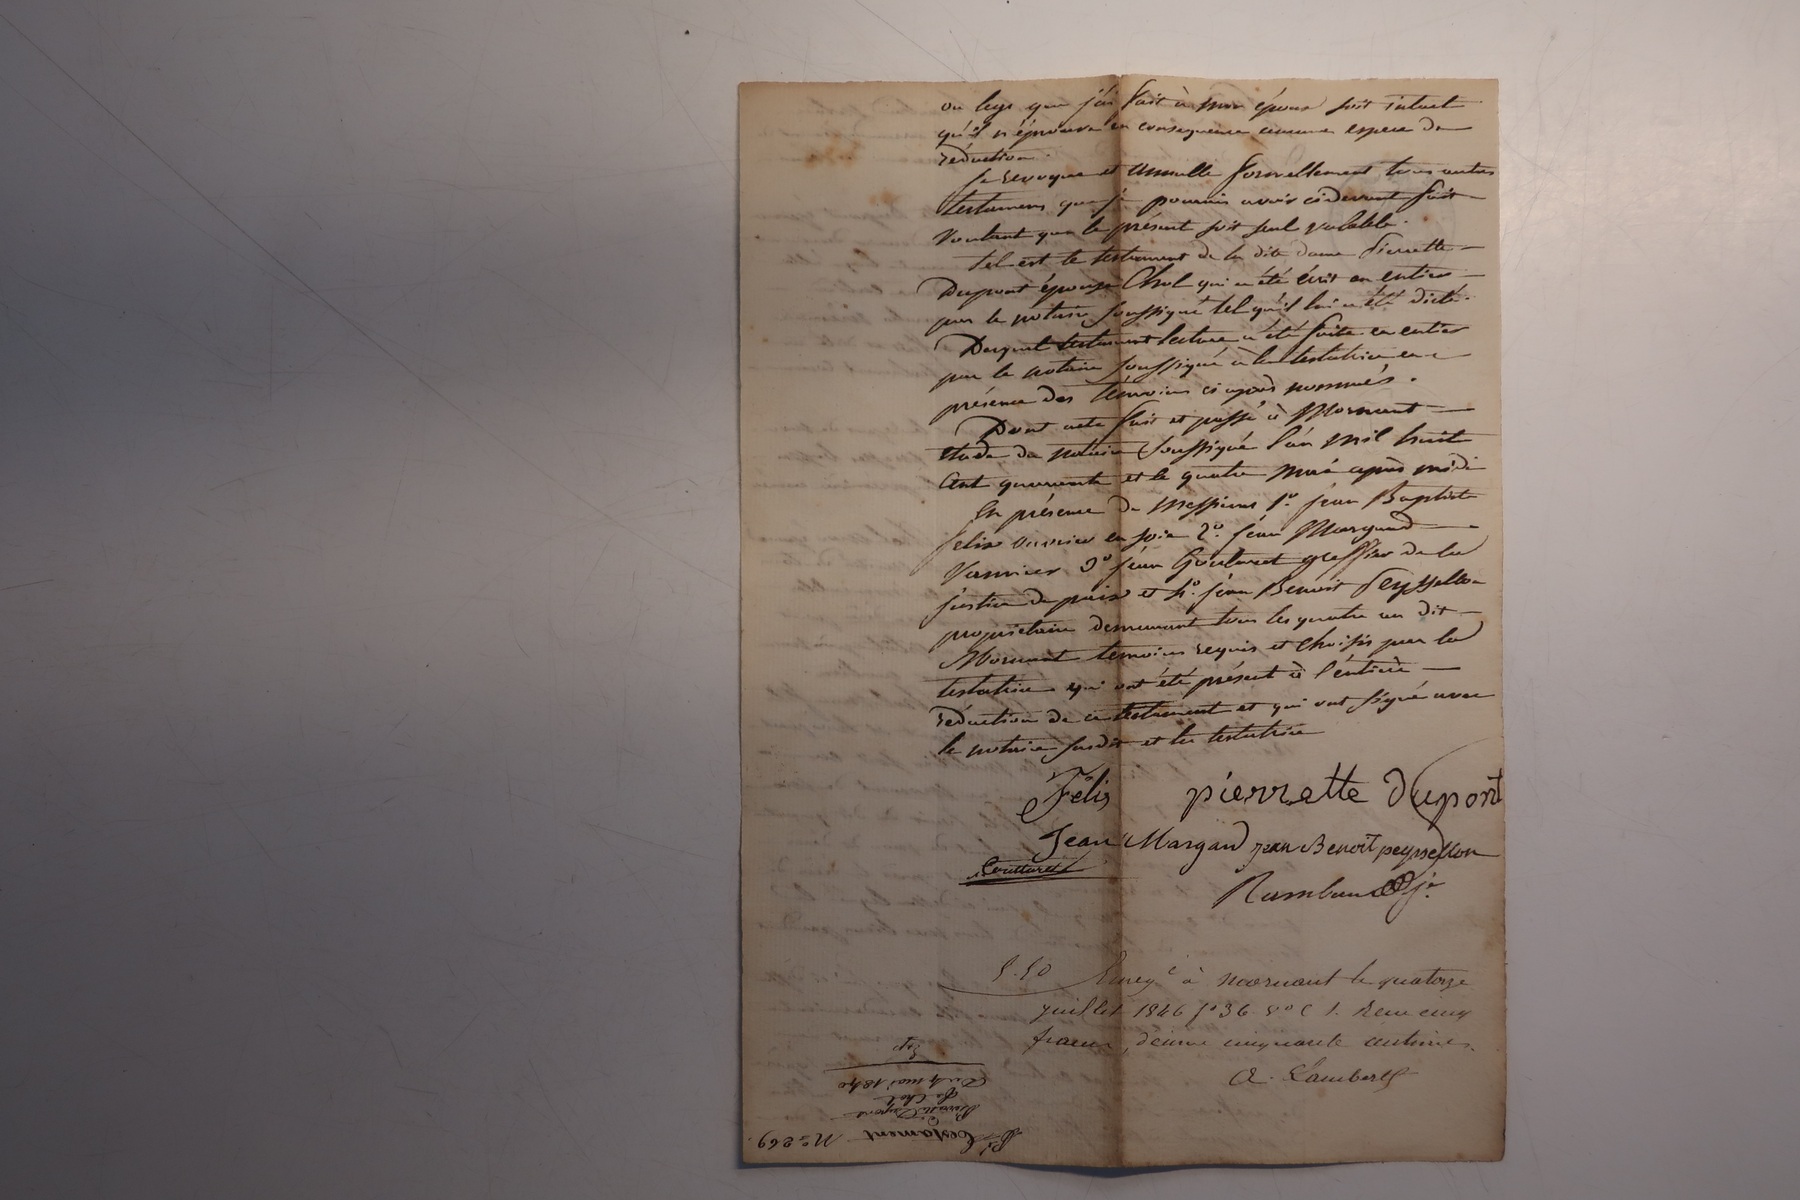 ou legs que j'ai fait à mon époux soit intact
qu'il n'éprouve en consequence aucune espece de
réduction.
Je revoque et annulle formellement tous autres
testamens que je pourrais avoir cidevant fait
voulant que le présent soit seul valable.
Tel est le testament de la dite dame Pierrette
Dupont épouse Chol qui a été écrit en entier
par le notaire soussigné tel qu'il lui a été dicté.
Duquel testament lecture a été faite en entier
par le notaire soussigné à la testatrice en
présence des témoins ci après nommés.
Dont acte fait et passé à Mornant
étude du notaire soussigné l'an mil huit
cent quarante et le quatre mai après midi
En présence de Messieurs 1º. jean Baptiste
Felix ouvrier en soie 2º. jean Margand
Vannier 3º jean Goutaret greffier de la
justice de paix et 4º. jean Benoit Peyssellon
propriétaire demeurant tous les quatre au dit
Mornant temoins requis et choisis par la
testatrice qui ont été présent à l'entière
rédaction de ce testament et qui ont signé avec
le notaire susdit et la testatrice
Félix pierrette dupont
Jean Margand jean Benoit peyssellon
Goutaret
Rambaud je.
5.50 Enregé à mornant le quatorze
juillet 1846 fº 36 vº c 1. Reçu cinq
francs, décime cinquante centimes.
A. Lambert
Nº 269.
Testament
Pierrette Dupont
fe Chol
Du 4 mai 1840
Exp